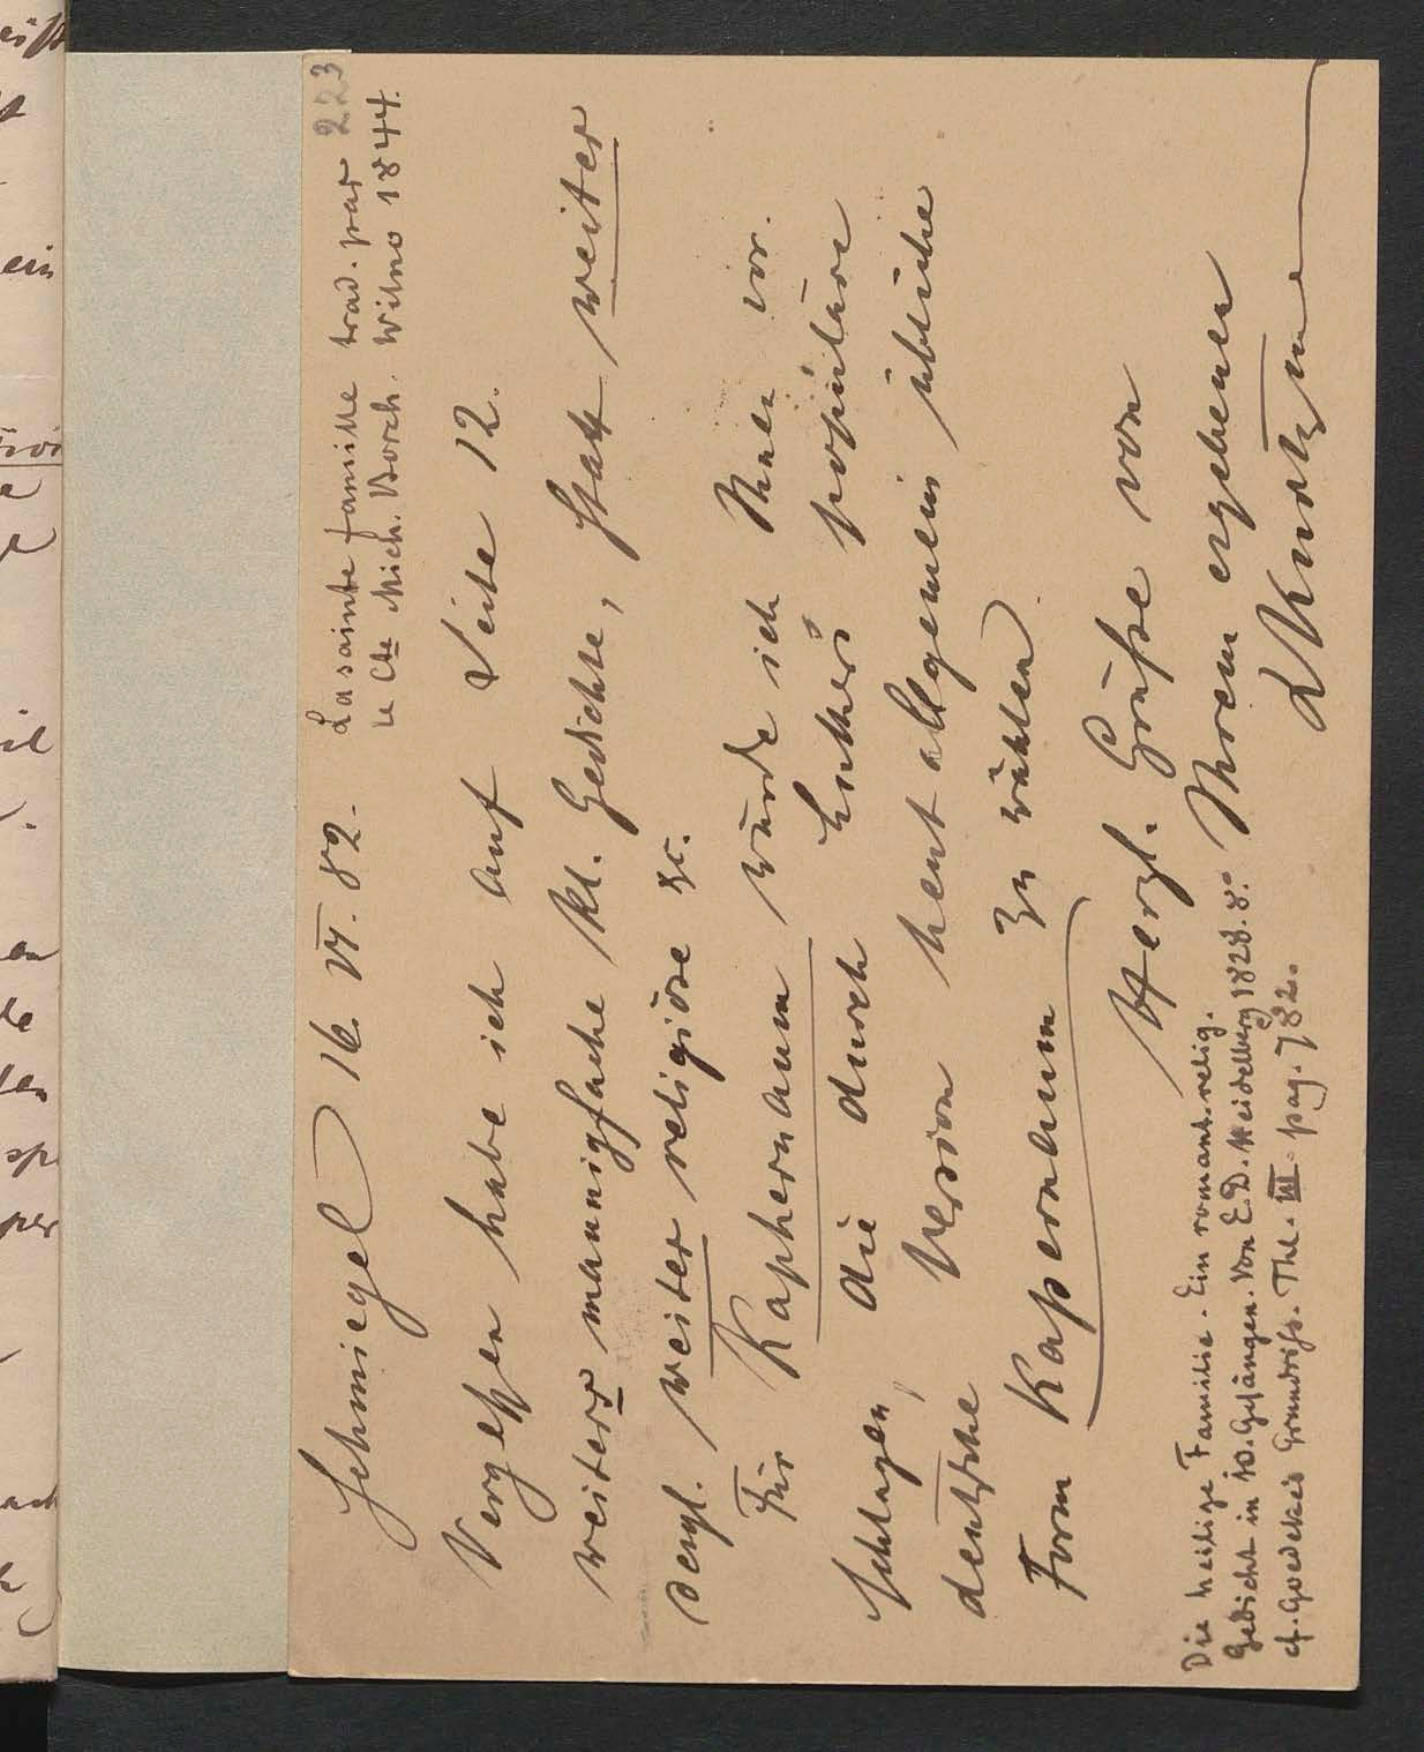 223
La sainte famille trad. par
le Cte Mich. Borch. Wilno 1844.
Schmiegel 16. VI. 82.
Vergeßen habe ich auf Seite 12.
weiters mannigfache kl. Gedichte, statt weiter
dergl. weiter religiöse etc.
Für Kaphernaum würde ich Ihnen vor-
schlagen, die durch Luthers populäre
deutsche Version heut allgemein übliche
Form Kapernaum zu wählen
Herzl. Grüße von
Ihrem ergebenen
Die heilige Familie. Ein romant. relig.
Gedicht in 10. Gesängen. Von E. D. Heidelberg 1828. 8°.
cf. Goedekes Grundriß. Thl. III pag. 782.